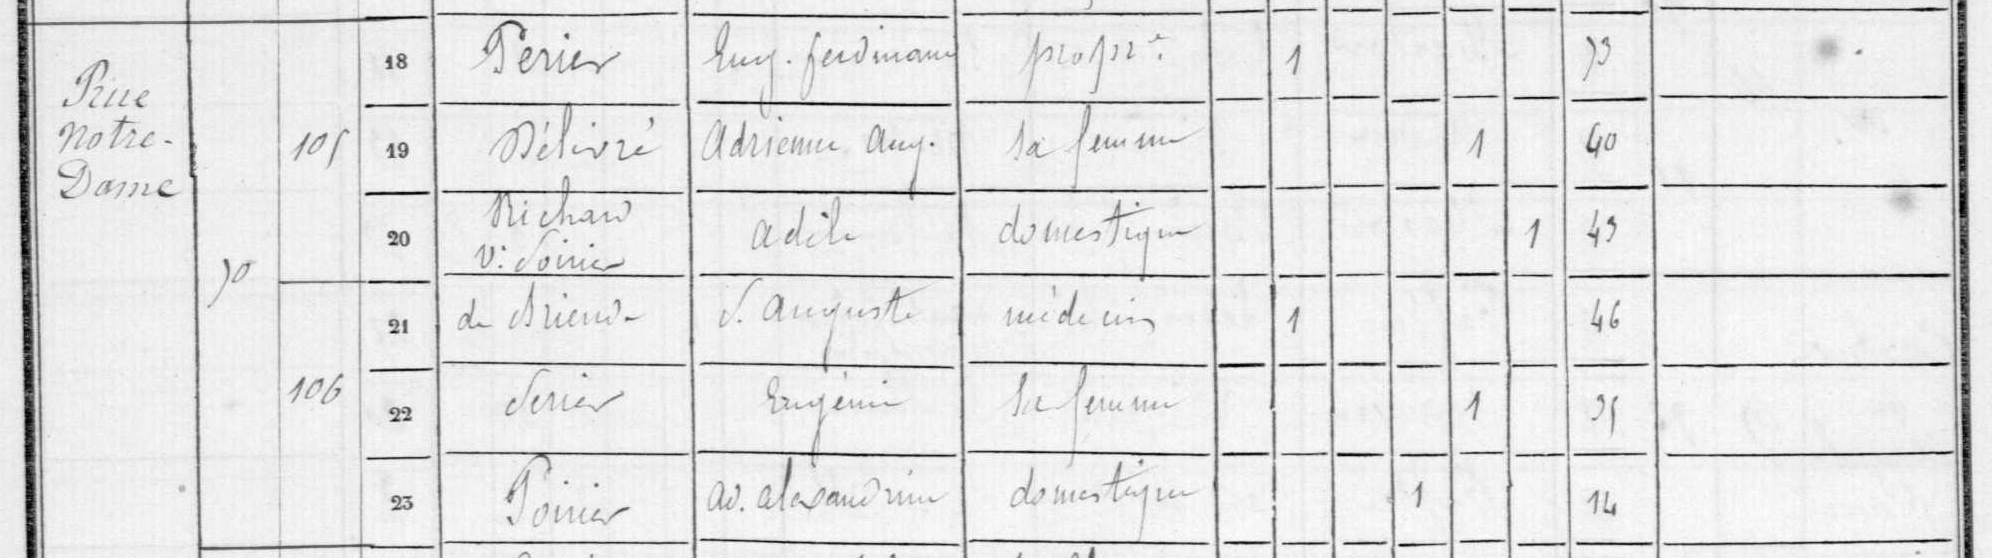 18 Perier Eug. ferdinand propre. 1 73
Rue
Notre-
Dame
105 19 Délivré Adrienne Aug. sa femme 1 40
20 Richard
Ve. Poirier Adèle domestique 1 43
70
21 de Briend P. Auguste médecin 1 46
106 22 Perier Eugénie sa femme 1 35
23 Poirier ad. alexandrine domestique 1 14